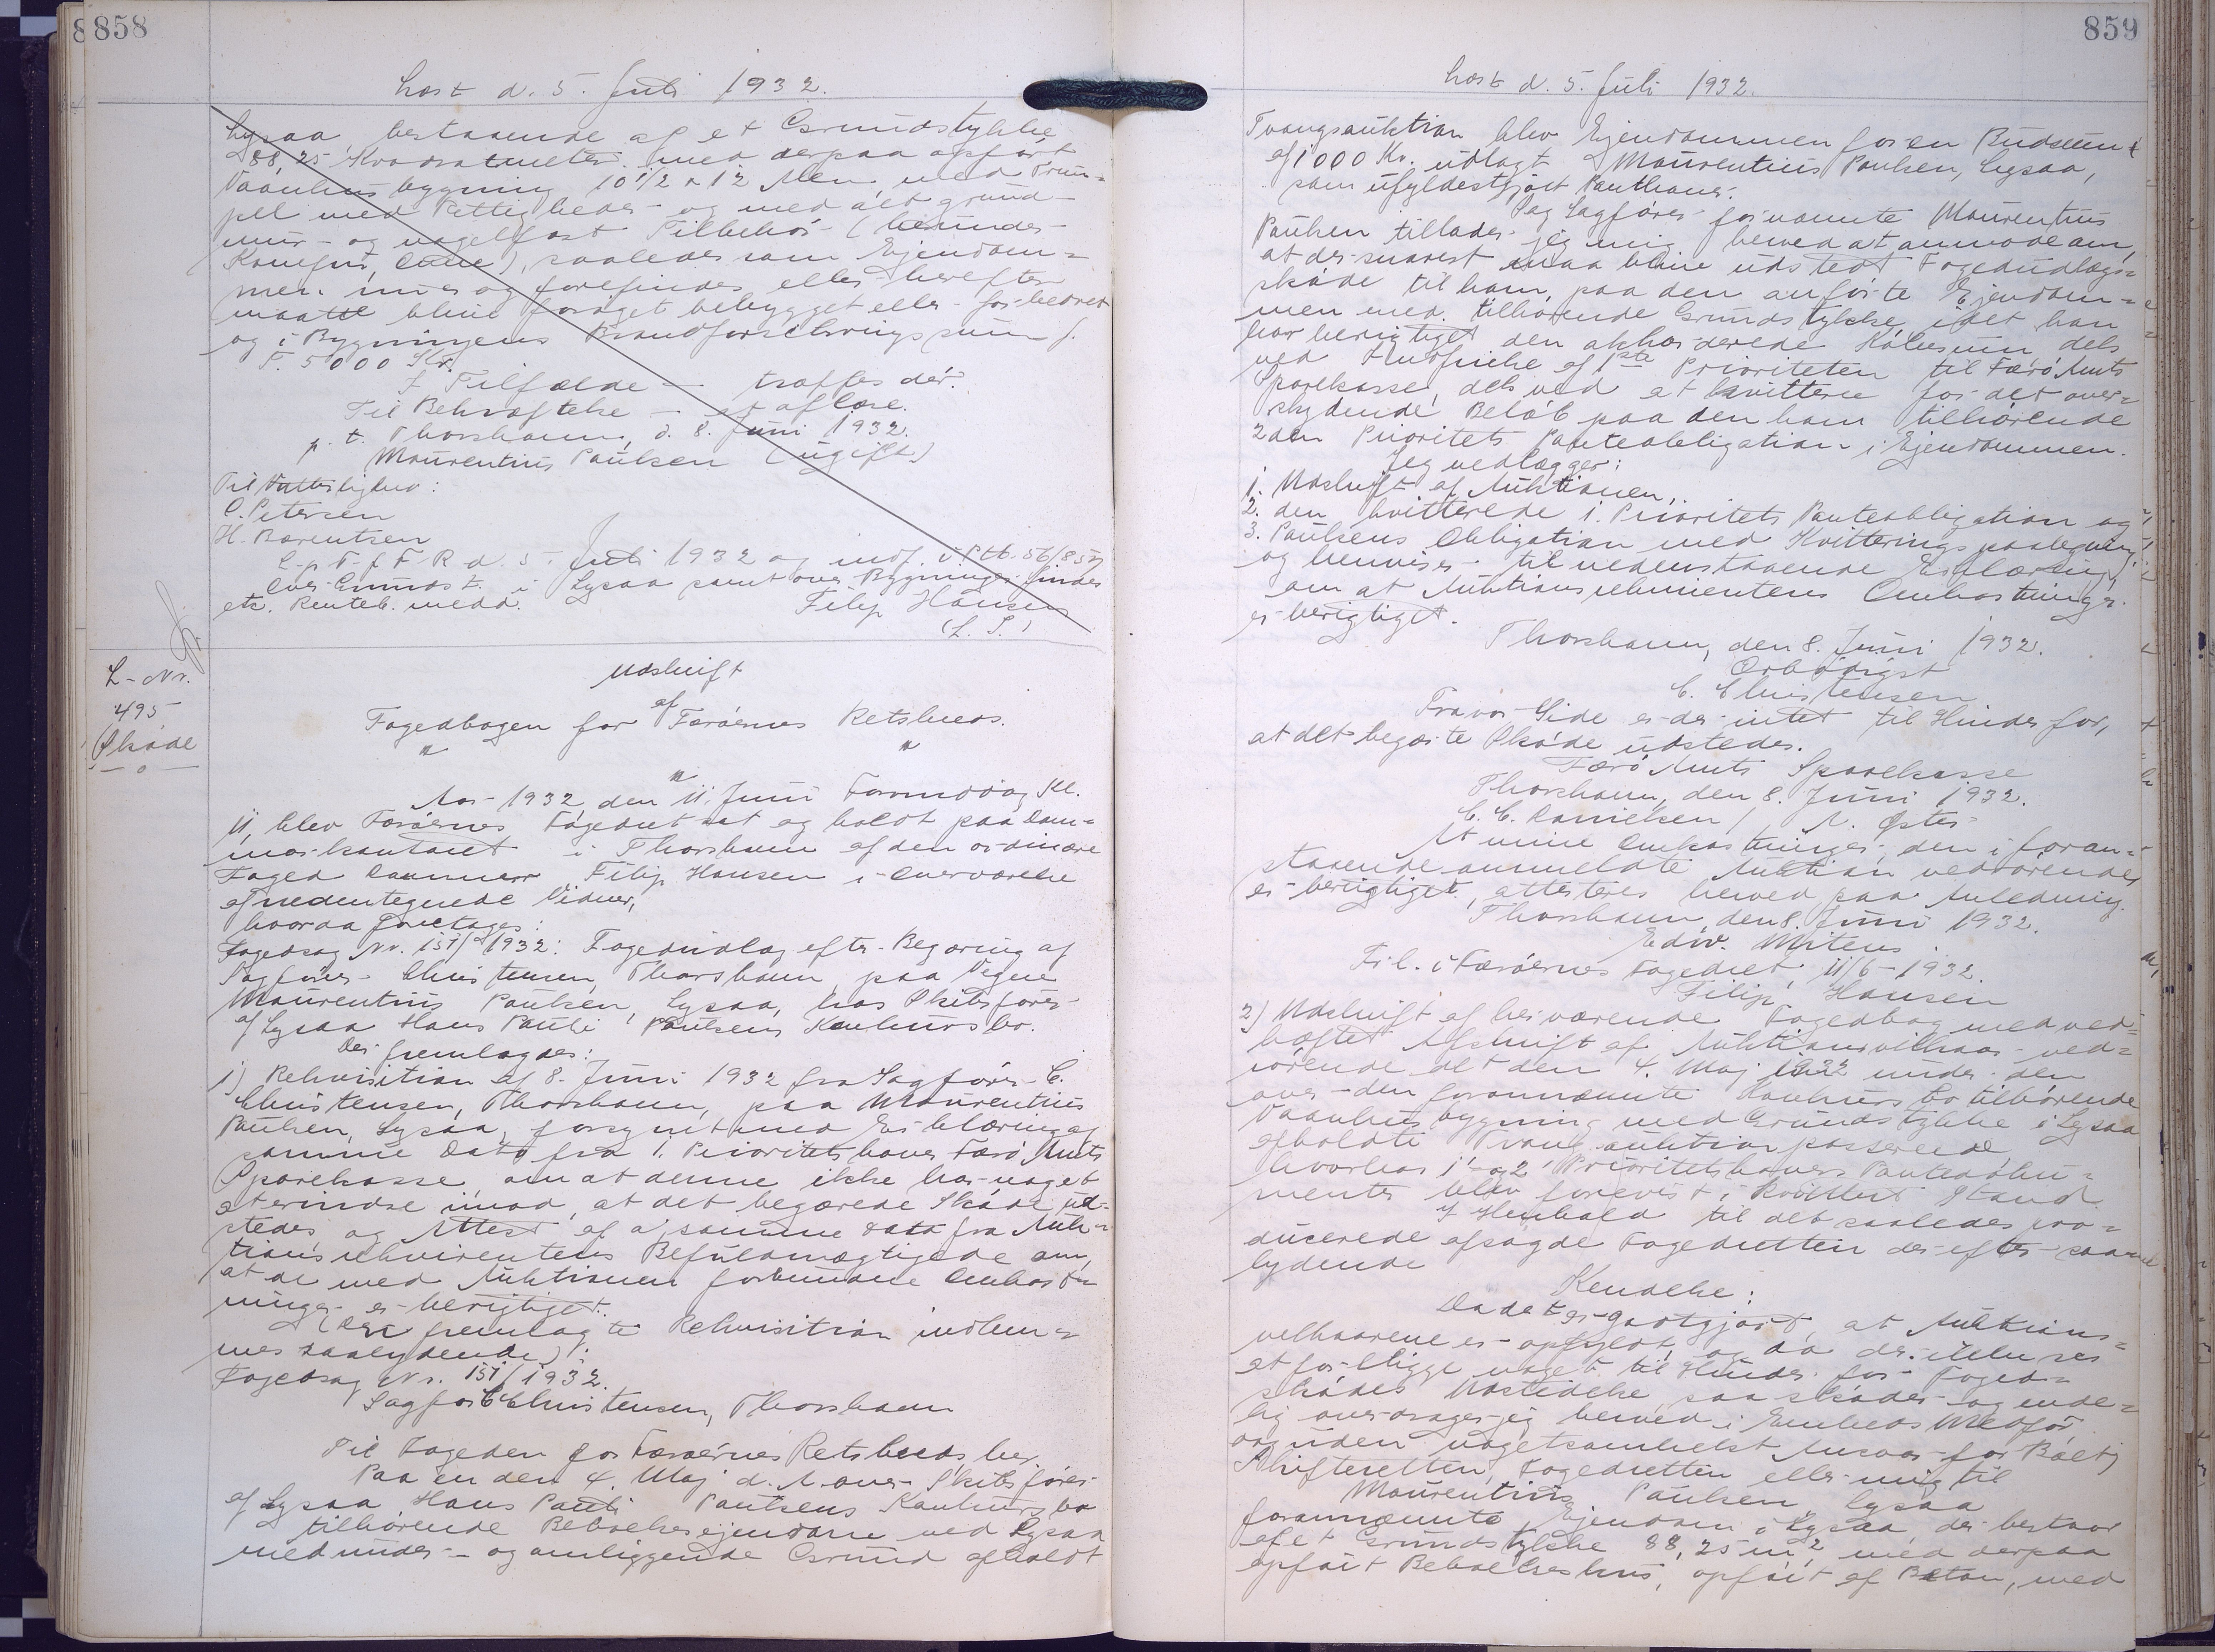 858
Læst d. 5. Juli 1932.
Lysaa bestaaende af et Grundstykke
88,25 Kvadratmeter med derpaa opført
Vaanhusbygning 10 1/2 x 12 Alen, med Trum-
pel med Rettigheder og med alt grund-
mur- og nagelfast Tilbehör (herunder
Komfur, Ovne), saaledes som Ejendom-
men nu er og forefindes eller herefter
maatte blive foröget bebygget eller forbedret
og i Bygningens Brandforsikringssum f.
T. 5000 Kr.
I Tilfælde — træffes dér.
Til Bekræftelse — at aflæse.
p. t. Thorshavn, d. 8. Juni 1932.
Maurentius Paulsen (ugift)
Til Vitterlighed:
O. Petersen
H. Bærentsen
L. p. T. f. F. R. d. 5. Juli 1932 og indf. i Ptb. 56/857
Over Grundst. i Lysaa samt over Bygninger findes
etc. Renteb. medd.
Filip Hansen
(L. S.)
L-Nr.
495
Sköde
— o —
Udskrift
af
Fogedbogen for Færöernes Retskreds.
" "
"
Aar 1932 den 11. Juni Formiddag Kl.
11, blev Færöernes Fogedret sat og holdt paa Dom-
merkontoret i Thorshavn af den ordinære
Foged Dommer Filip Hansen i Overværelse
af nedentegnede Vidner,
hvorda foretoges:
Fogedsag Nr. 151/1932: Fogedudlæg efter Begæring af
Sagförer Christensen, Thorshavn paa Vegne
Maurentius Paulsen, Lysaa, hos Skibsförer
af Lysaa Hans Pauli Paulsens Konkursbo.
Der fremlagdes:
1) Rekvisition af 8. Juni 1932 fra Sagförer C.
Christensen, Thorshavn, paa Maurentius
Paulsen, Lysaa, forsynet med Erklæring af
samme Dato fra 1. Prioritetshaver Færö Amts
Sparekasse, om at denne ikke har noget
at erindre imod, at det begærede Sköde ud-
stedes og Attest af a/ samme Dato fra Auk-
tionsrekvirentens Befuldmægtigede om,
at de med Auktionen forbundne Omkost-
ninger er berigtiget.
(Den fremlagte Rekvisition indlem-
mes saalydende):
Fogedsag Nr. 151/1932.
Sagför C Christensen, Thorshavn
Til Fogeden for Færöernes Retskreds, her.
Paa en den 4. Maj d. A. over Skibsförer
af Lysaa Hans Pauli Paulsens Konkursbo
tilhörende Beboelsesejendom ved Lysaa
med under- og omliggende Grund afholdt
859
Læst d. 5. Juli 1932.
Tvangsauktion blev Ejendommen for en Budsum
af 1000 Kr. udlagt Maurentius Paulsen, Lysaa,
som ufyldestgjort Panthaver.
Paa Sagförer fornævnte Maurentius
Paulsen tillader jeg mig herved at anmode om,
at der snarest maa blive udstedt Fogedudlægs-
sköde til ham, paa den anförte Ejendom-
men med tilhörende Grundstykke, idet han
har berigtiget den akkorderede Köbesum dels
ved Indfrielse af 1ste Prioriteten til Færö Amts
Sparekasse, dels ved at kvittere for det over-
skydende Belöb paa den ham tilhörende
2den Prioritets Panteobligation i Ejendommen.
Jeg vedlægger:
1. Udskrift af Auktionen,
2. den kvitterede 1. Prioritets Panteobligation og
3. Paulsens Obligation med Kvitteringspaategning,
og henviser til nedenstaaende Erklæring,
om at Auktionsrekvirentens Omkostninger
er berigtiget.
Thorshavn, den 8. Juni 1932.
Ærbödigst
C. Christensen
Fra vor Side er der intet til Hinder for,
at det begærte Sköde udstedes.
Færö Amts Sparekasse
Thorshavn, den 8. Juni 1932.
C. C. Danielsen / A. Öster
At mine Omkostninger, den i foran-
staaende anmeldte Auktion vedrörende
er berigtiget, attesteres herved paa Anledning.
Thorshavn, den 8. Juni 1932.
Edw. Mitens
Frl. i Færöernes Fogedret, 11/6-1932.
Filip Hansen
2) Udskrift af herværende Fogedbog med ved-
hæftet Afskrift af Auktionsvilkaar ved-
rörende det den 4. Maj 1932 under den
over den forannævnte Konkursbo tilhörende
Vaanhusbygning med Grundstykke i Lysaa
afholdte Tvangsauktion passerede,
hvorhos 1' og 2' Prioritetshavers Pantedoku-
menter blev forevist i kvitteret Stand.
I Henhold til det saaledes pro-
ducerede afsagde Fogedretten der efter saa-
lydende
Kendelse:
Da det er godtgjort, at Auktions-
velkaarene er opfyldt, og da der ikke ses
at foreligge noget til Hinder for Foged-
skødes Udstedelse, saa sköder og ende-
lig overdrager jeg herved i Embeds Medför
og uden nogetsomhelst Ansvar for Boet,
Skifteretten, Fogedretten eller mig til
Maurentius Paulsen, Lysaa
forannævnte Ejendom i Lysaa, der bestaar
af et Grundstykke 88,25 m², med derpaa
opfört Beboelseshus, opfört af Beton, med